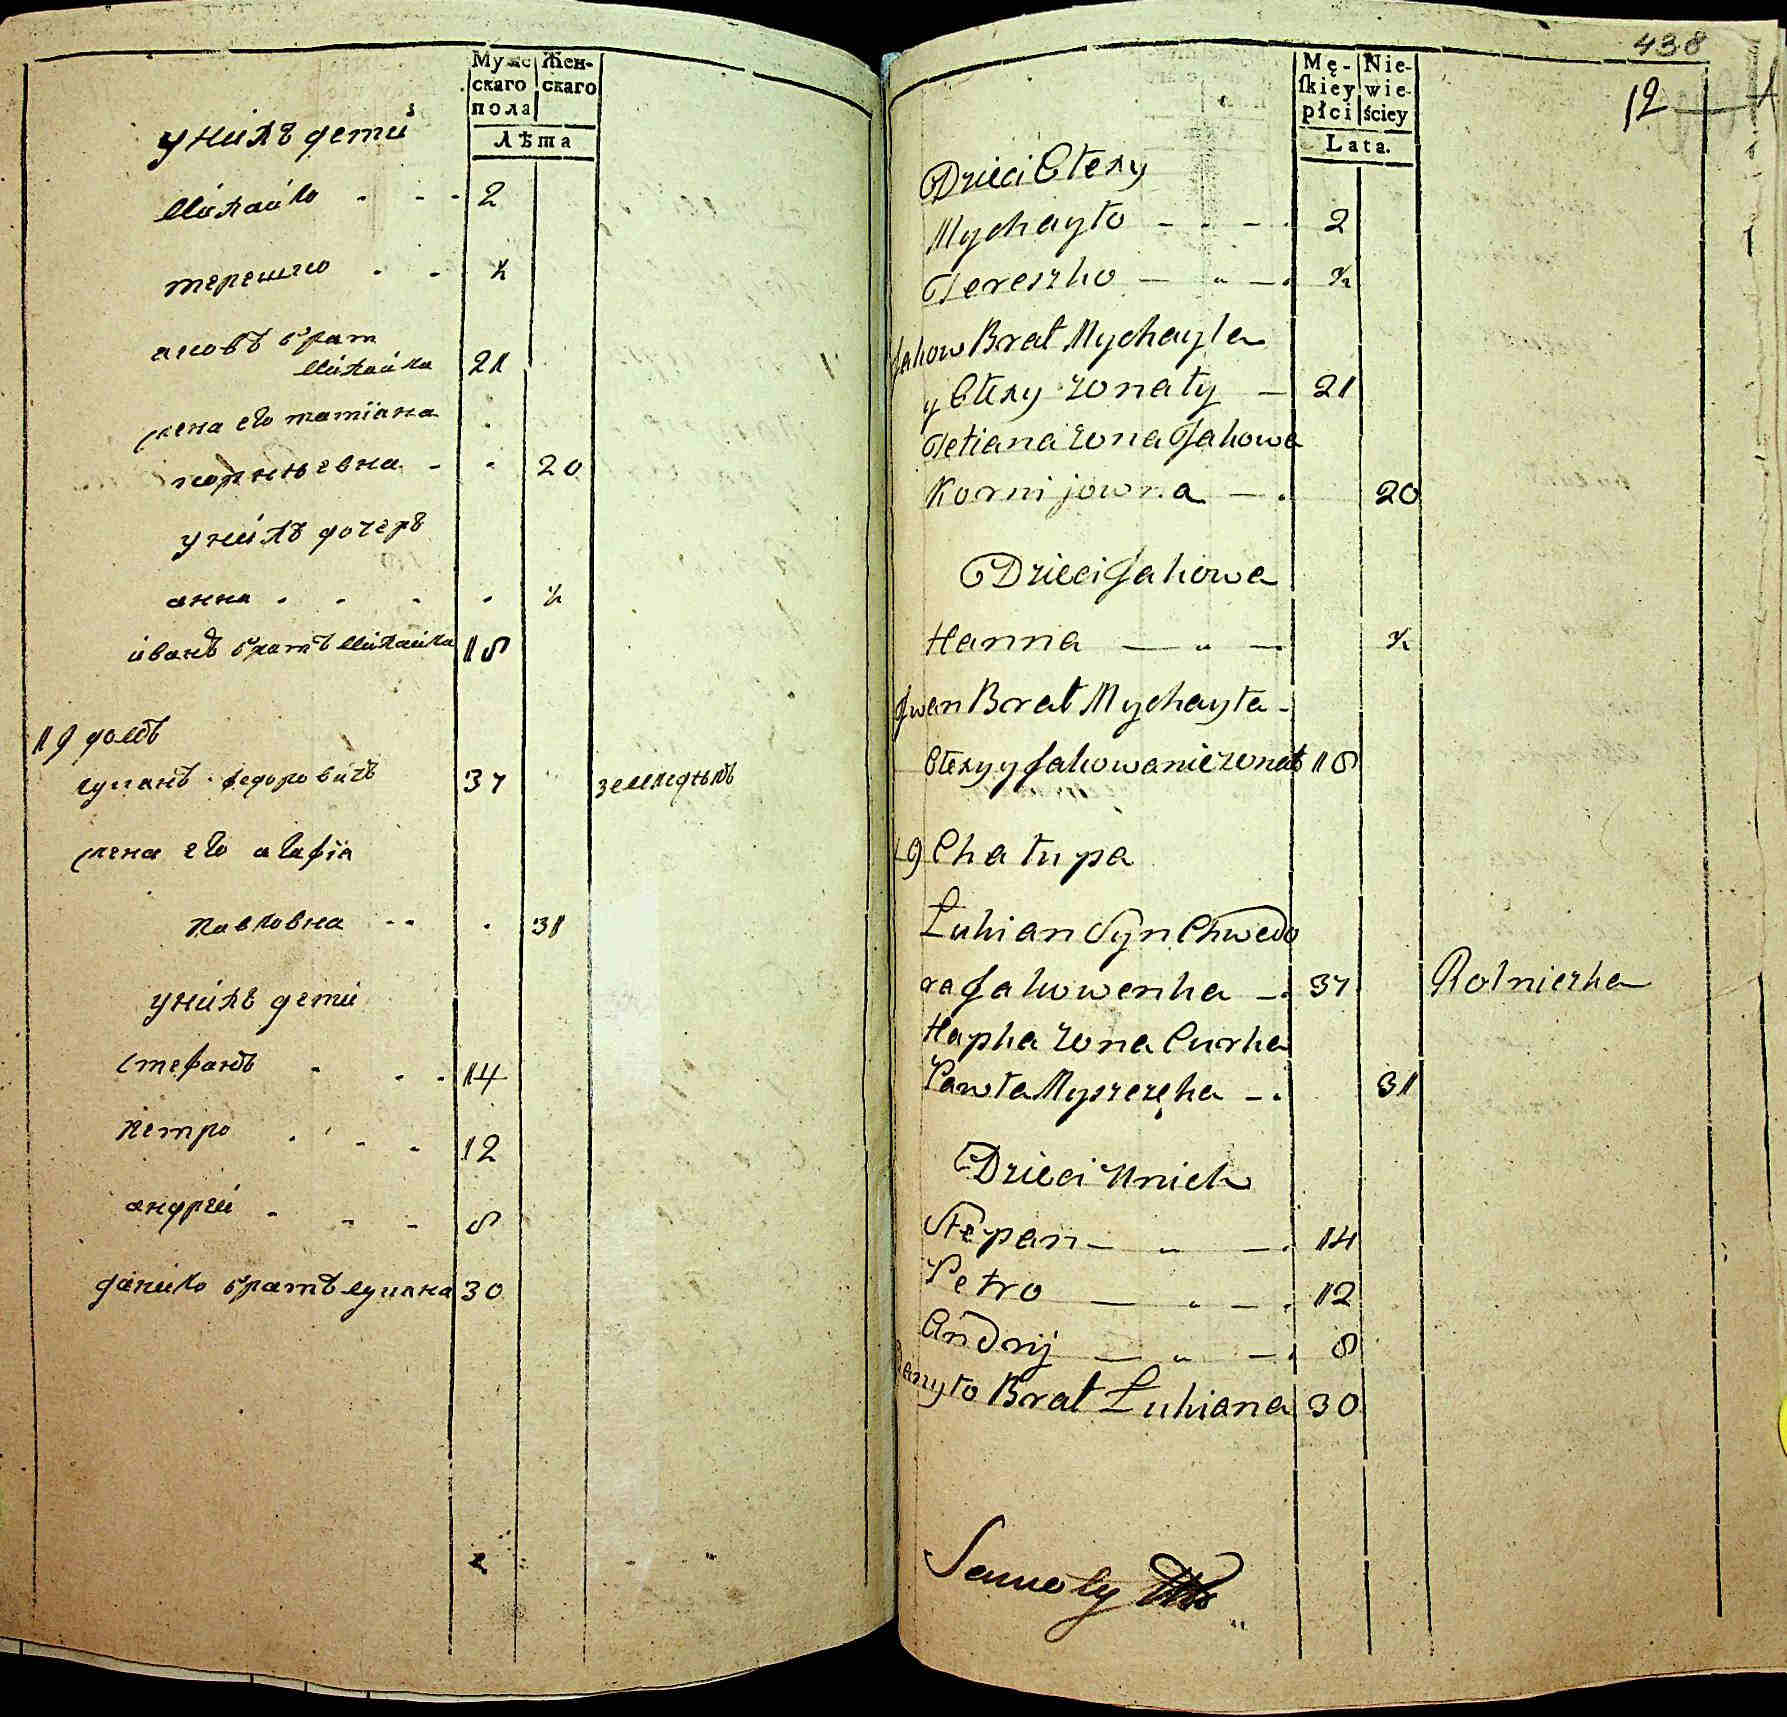 Мужескаго пола
Женскаго
Лѣта
у нихъ дети
Михайло 2
терешко ½
яковъ брат
Михайла 21
жена его татïана
корнѣевна 20
у нихъ дочеръ
анна ½
иванъ братъ Михайла 18
19 домъ
лукянъ федоровичъ 37 земледѣлъ
жена его агафïя
павловна 31
у нихъ дети
стефанъ 14
петро 12
андрей 8
данило братъ лукяна 30
438
12
Mę-
ſkiey
płci
Nie-
wie-
ściey
Lata.
Dzieci Ełexy
Mychayło 2
Tereszko ½
Jakow Brat Mychayła
y Ełexy zonaty 21
Tetiana zona Jakowa
Kornijowna 20
Dzieci Jakowa
Hanna ½
Jwan Brat Mychayła
Ełexy y Jakowa niezonat 18
19 Chałupa
Łukian Syn Chwedo
ra Jakowenka 37 Rolniczka
Hapka zona Curka
Pawła Myszczęka 31
Dzieci Unich
Stepan 14
Petro 12
Andrij 8
Danyło Brat Łukiana 30